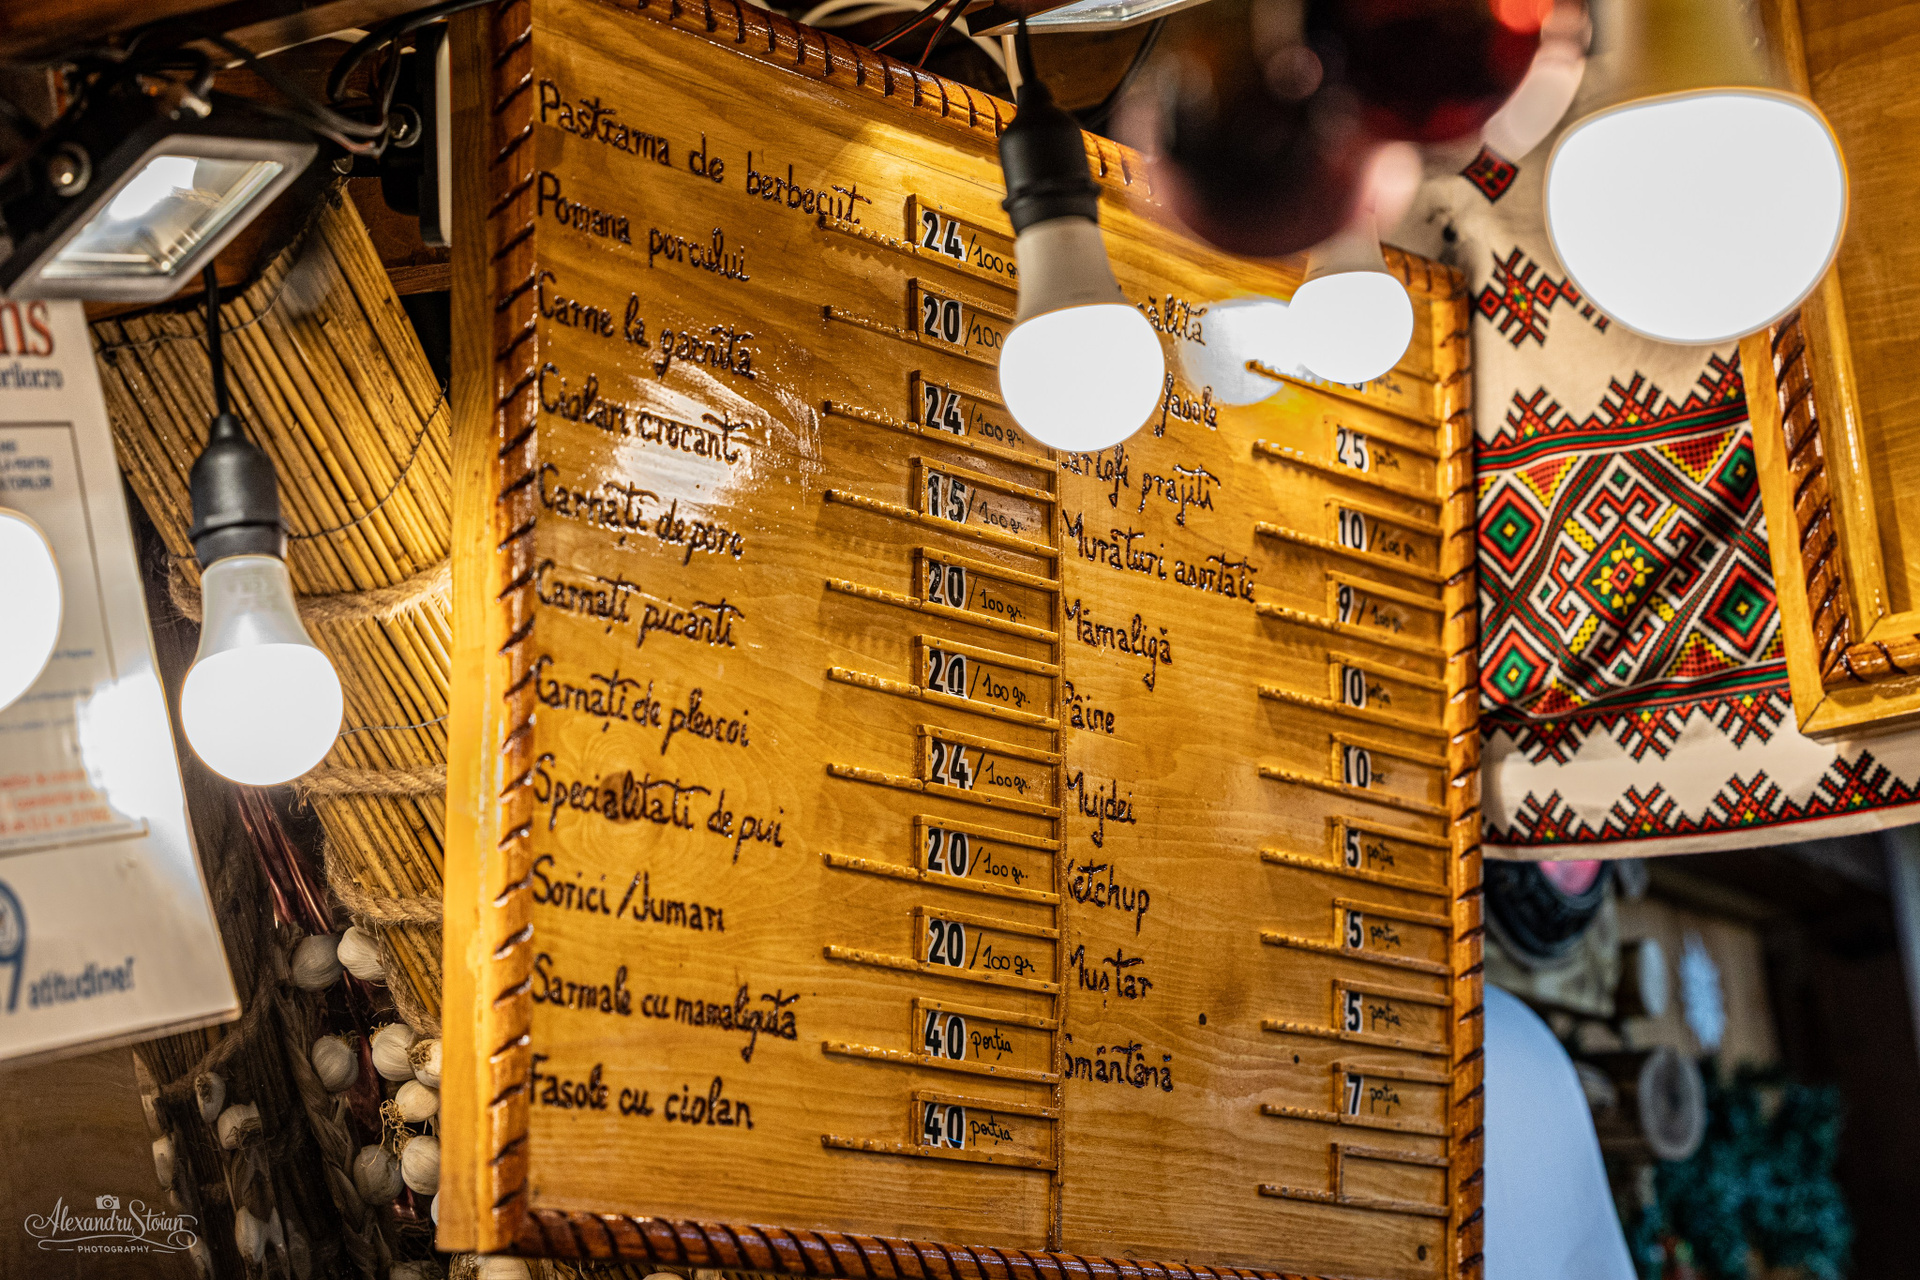 Pastrama de berbecuț 24/100 gr
Pomana porcului 20/100
Carne la garnita 24/100 gr.
Ciolan crocant 15/100 gr.
Carnați de porc 20/100 gr.
Carnați picanti 20/100 gr.
Carnați de plescoi 24/100 gr.
Specialitati de pui 20/100 gr.
Sorici/Jumari 20/100 gr
Sarmale cu mamaliguta 40 porția
Fasole cu ciolan 40 porția
fasole 25 porția
prajiti 10/100 gr.
Murături asortate 9/100 gr.
Mămaligă 10 porția
Pâine 10
Mujdei 5 porția
Ketchup 5 porția
Muștar 5 porția
7 porția
atitudine!
Alexandru Stoian
PHOTOGRAPHY